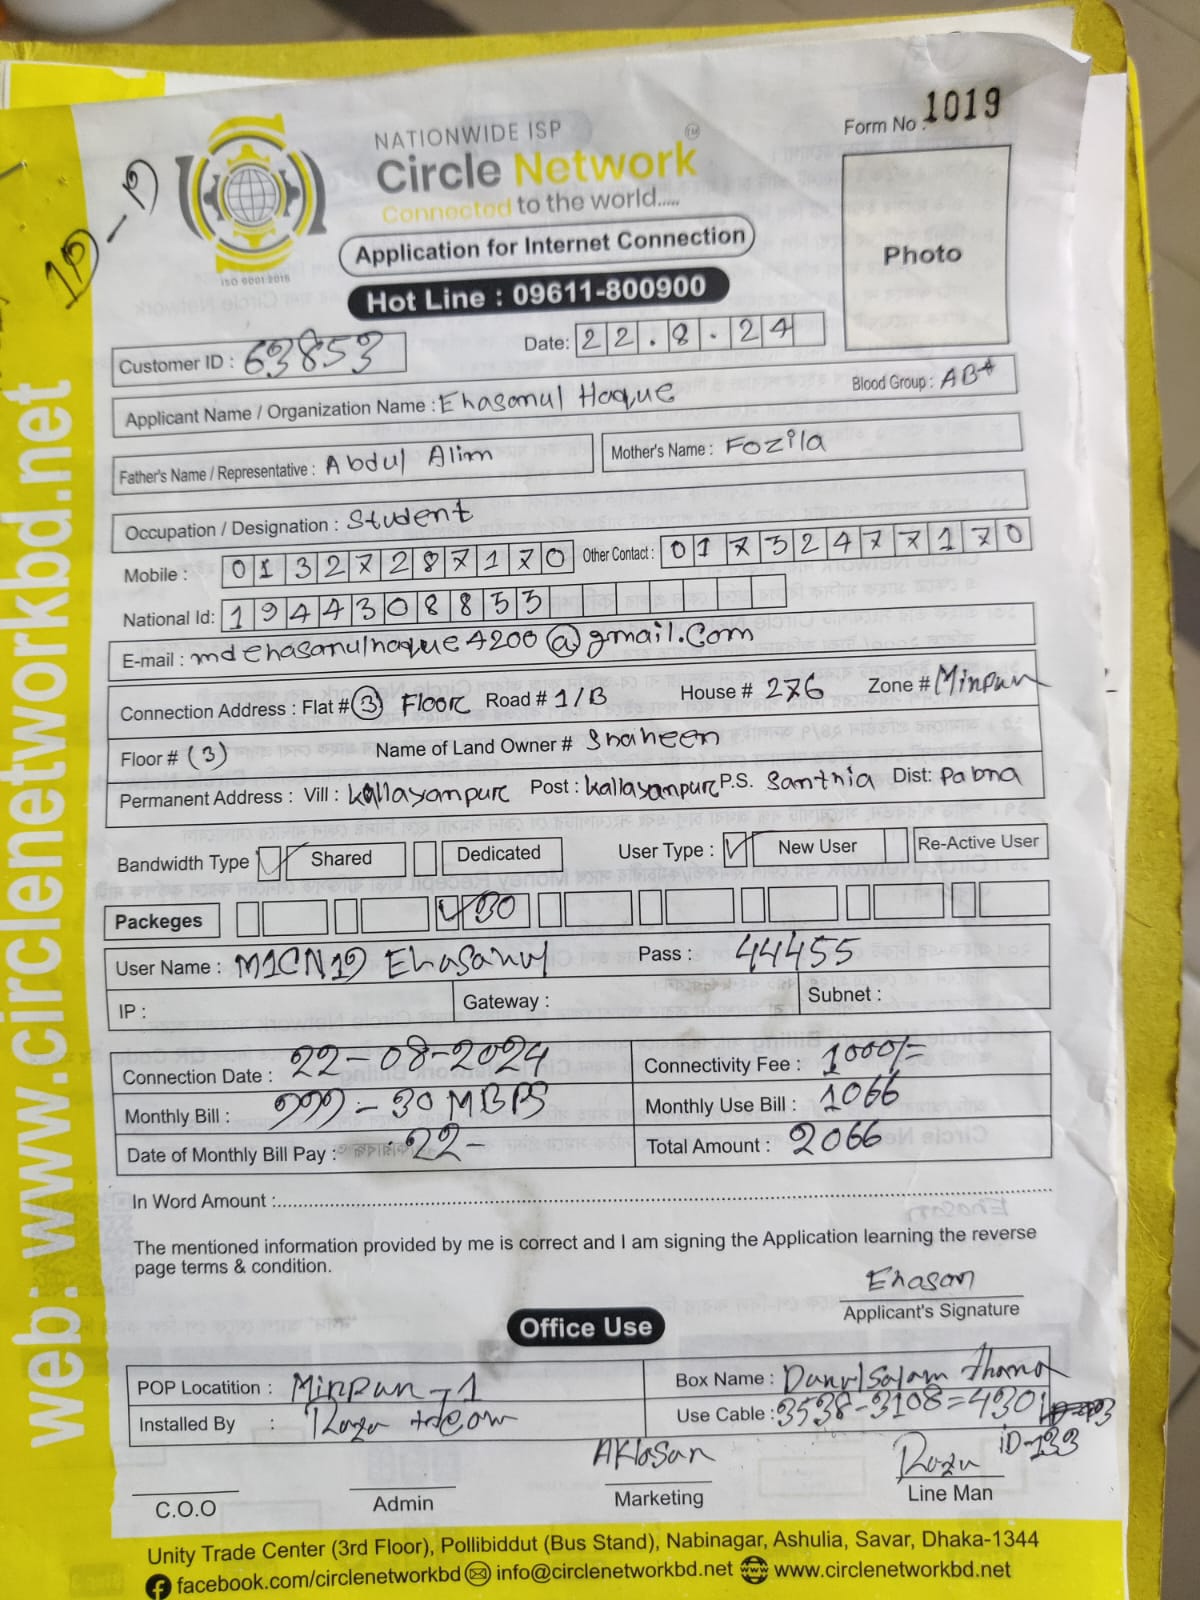 Form No : 1019
NATIONWIDE ISP
Circle Network TM
Connected to the world.....
Application for Internet Connection
Hot Line : 09611-800900
ISO 9001:2015
Photo
Customer ID : 63853
Date: 22.8.24
Applicant Name / Organization Name : Ehasanul Haque Blood Group : AB+
Father's Name / Representative : Abdul Alim Mother's Name : Fozila
Occupation / Designation : Student
Mobile : 01327287170 Other Contact : 01732477170
National Id: 1944308855
E-mail : mdehasanulhaque4200@gmail.com
Connection Address : Flat # 3 Floor Road # 1/B House # 276 Zone # Mirpur
Floor # (3) Name of Land Owner # Shaheen
Permanent Address : Vill : Kallayanpur Post : Kallayanpur P.S. Santhia Dist: Pabna
Bandwidth Type Shared Dedicated User Type : New User Re-Active User
Packeges 30
User Name : M1CN19 Ehasanul Pass : 44455
IP : Gateway : Subnet :
Connection Date : 22-08-2024 Connectivity Fee : 1000/=
Monthly Bill : 999 - 30 MBPS Monthly Use Bill : 1066
Date of Monthly Bill Pay : 22- Total Amount : 2066
In Word Amount :
The mentioned information provided by me is correct and I am signing the Application learning the reverse
page terms & condition.
Ehasan
Applicant's Signature
Office Use
POP Locatition : Mirpur-1 Box Name : Darul Salam thana
Installed By : Use Cable : 3538-3108=430
iD-133
C.O.O Admin Marketing Line Man
Unity Trade Center (3rd Floor), Pollibiddut (Bus Stand), Nabinagar, Ashulia, Savar, Dhaka-1344
facebook.com/circlenetworkbd info@circlenetworkbd.net www.circlenetworkbd.net
web: www.circlenetworkbd.net